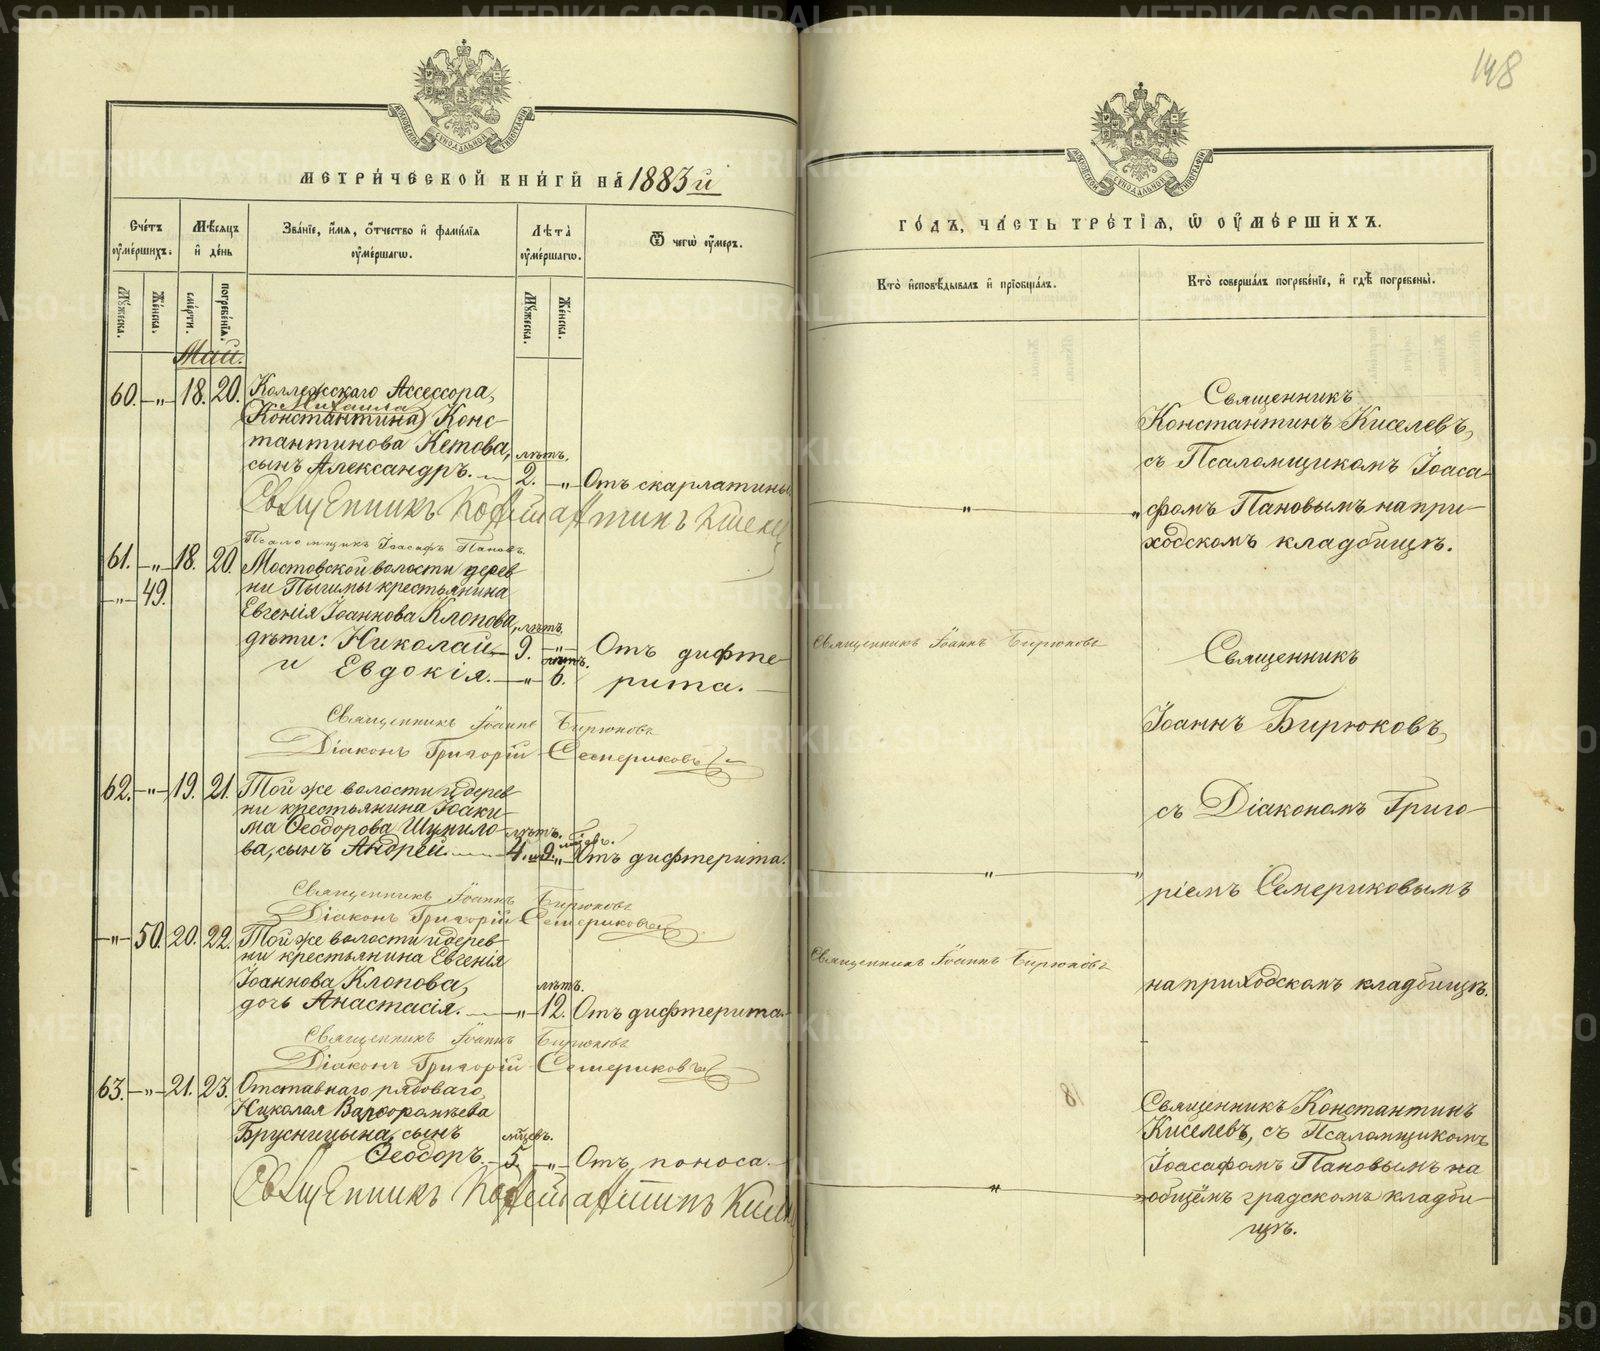 148
МОСКОВСКОЙ СѴНОДАЛЬНОЙ ТИПОГРАФІИ
МЕТРИ́ЧЕСКОЙ КНИ́ГИ НА 1883й
Сче́тъ ᲂумéршихъ.
Мѣ́сяцъ и де́нь
Зва́ніе, и́мя, ѻ҆́тчество и фами́лія ᲂумéршагѡ.
Лѣ́та ᲂумéршагѡ.
Ѿ чегѡ̀ ᲂу́меръ.
Мꙋ́жеска.
Же́нска.
сме́рти.
погребе́нія.
Мꙋ́жеска.
Же́нска.
Май.
60. „ 18. 20. Коллежскаго Ассессора,
Михаила
(Константина) Конс-
тантинова Кетова, лѣтъ.
сынъ Александръ. 2. „ Отъ скарлатины.
Священникъ Константинъ Киселев
Псаломщикъ Іоасафъ Пановъ.
61. „ 18. 20. Мостовской волости дерев
„ 49. ни Пышмы крестьянина
Евгенія Іоаннова Клопова, лѣтъ.
дѣти: Николай 9. „ Отъ дифте-
лѣтъ.
и Евдокія. „ 6. рита.
Священникъ Іоаннъ Бирюковъ
Діаконъ Григорій Семериковъ
62. „ 19. 21. Той же волости и дерев
ни крестьянина Іоаки-
ма Ѳеодорова Шунило- лѣтъ. мѣсяцъ.
ва, сынъ Андрей 4. и 9. „ Отъ дифтерита.
Священникъ Іоаннъ Бирюковъ
Діаконъ Григорій Семериковъ
„ 50. 20. 22. Той же волости и дерев
ни крестьянина Евгенія
Іоаннова Клопова, лѣтъ.
дочь Анастасія. „ 12. Отъ дифтерита.
Священникъ Іоаннъ Бирюковъ
Діаконъ Григорій Семериковъ
63. „ 21. 23. Отставнаго рядоваго
Николая Варфоломѣева
Брусницына, сынъ мѣсяцевъ.
Ѳеодоръ. 5. „ Отъ поноса.
Священникъ Константинъ Кисел
МОСКОВСКОЙ СѴНОДАЛЬНОЙ ТИПОГРАФІИ
ГО́ДЪ, ЧА́СТЬ ТРЕ́ТІѦ, Ѡ҆ ОУМЕ́РШИХЪ.
Кто̀ и҆сповѣ́дывалъ и҆ прїѡбща́лъ.
Кто̀ соверша́лъ погребе́нїе, и҆ гдѣ̀ погребены̀.
Священникъ
Константинъ Киселевъ,
съ Псаломщикомъ Іоаса-
„ „ фомъ Пановымъ на при-
ходскомъ кладбищѣ.
Священникъ Іоаннъ Бирюковъ
Священникъ
Іоаннъ Бирюковъ,
съ Діакономъ Григо-
„ „
ріемъ Семериковымъ
Священникъ Іоаннъ Бирюковъ
на приходскомъ кладбищѣ.
Священникъ Константинъ
Киселевъ, съ Псаломщикомъ
Іоасафомъ Пановымъ на
„ общемъ градскомъ кладби-
щѣ.
METRIKI.GASO-URAL.RU